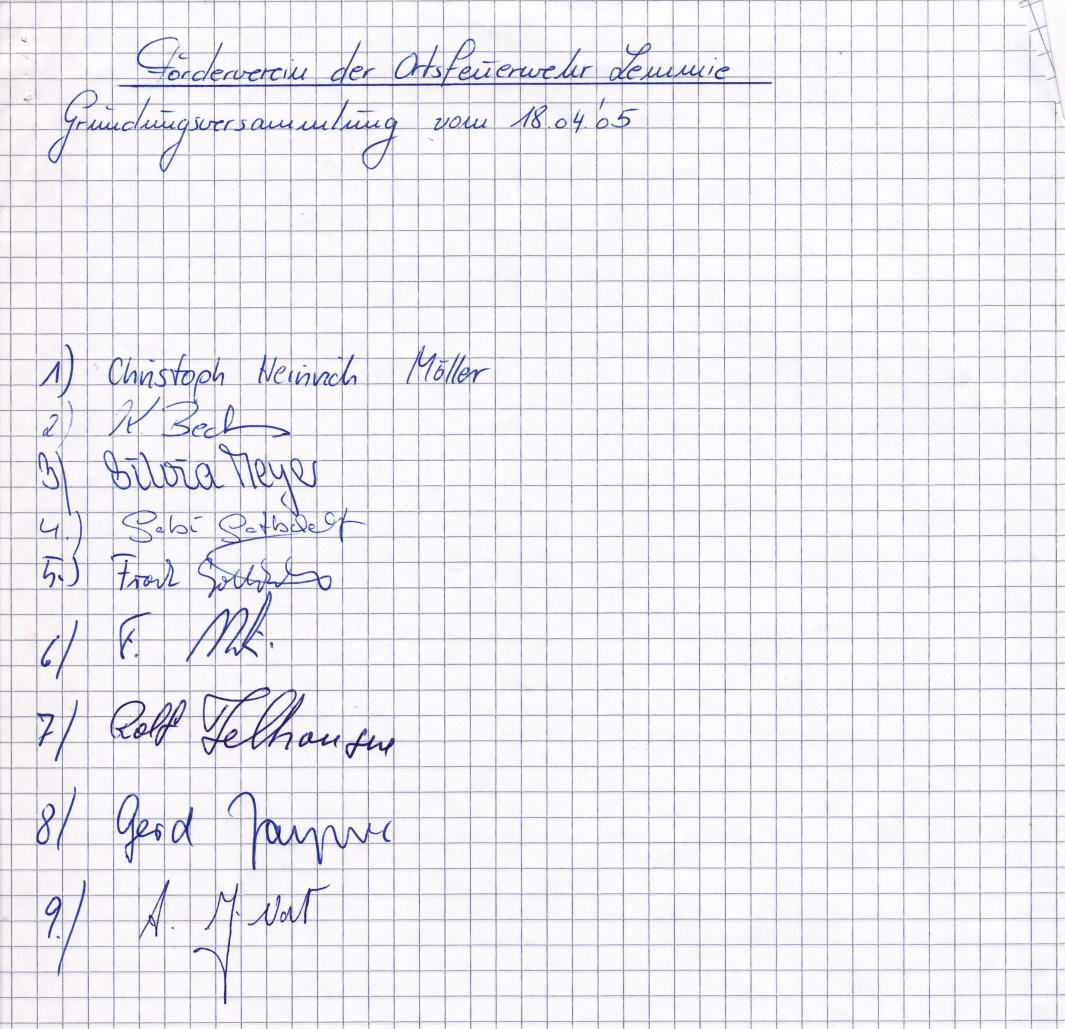 Förderverein der Ortsfeuerwehr Lemmie
Gründungsversammlung vom 18.04.'05
1) Christoph Heinrich Möller
2) K. Beck
3) Silvia Meyer
4.) Gabi
5.) Frank
6) F.
7) Rolf
8) Gerd
9.) A.